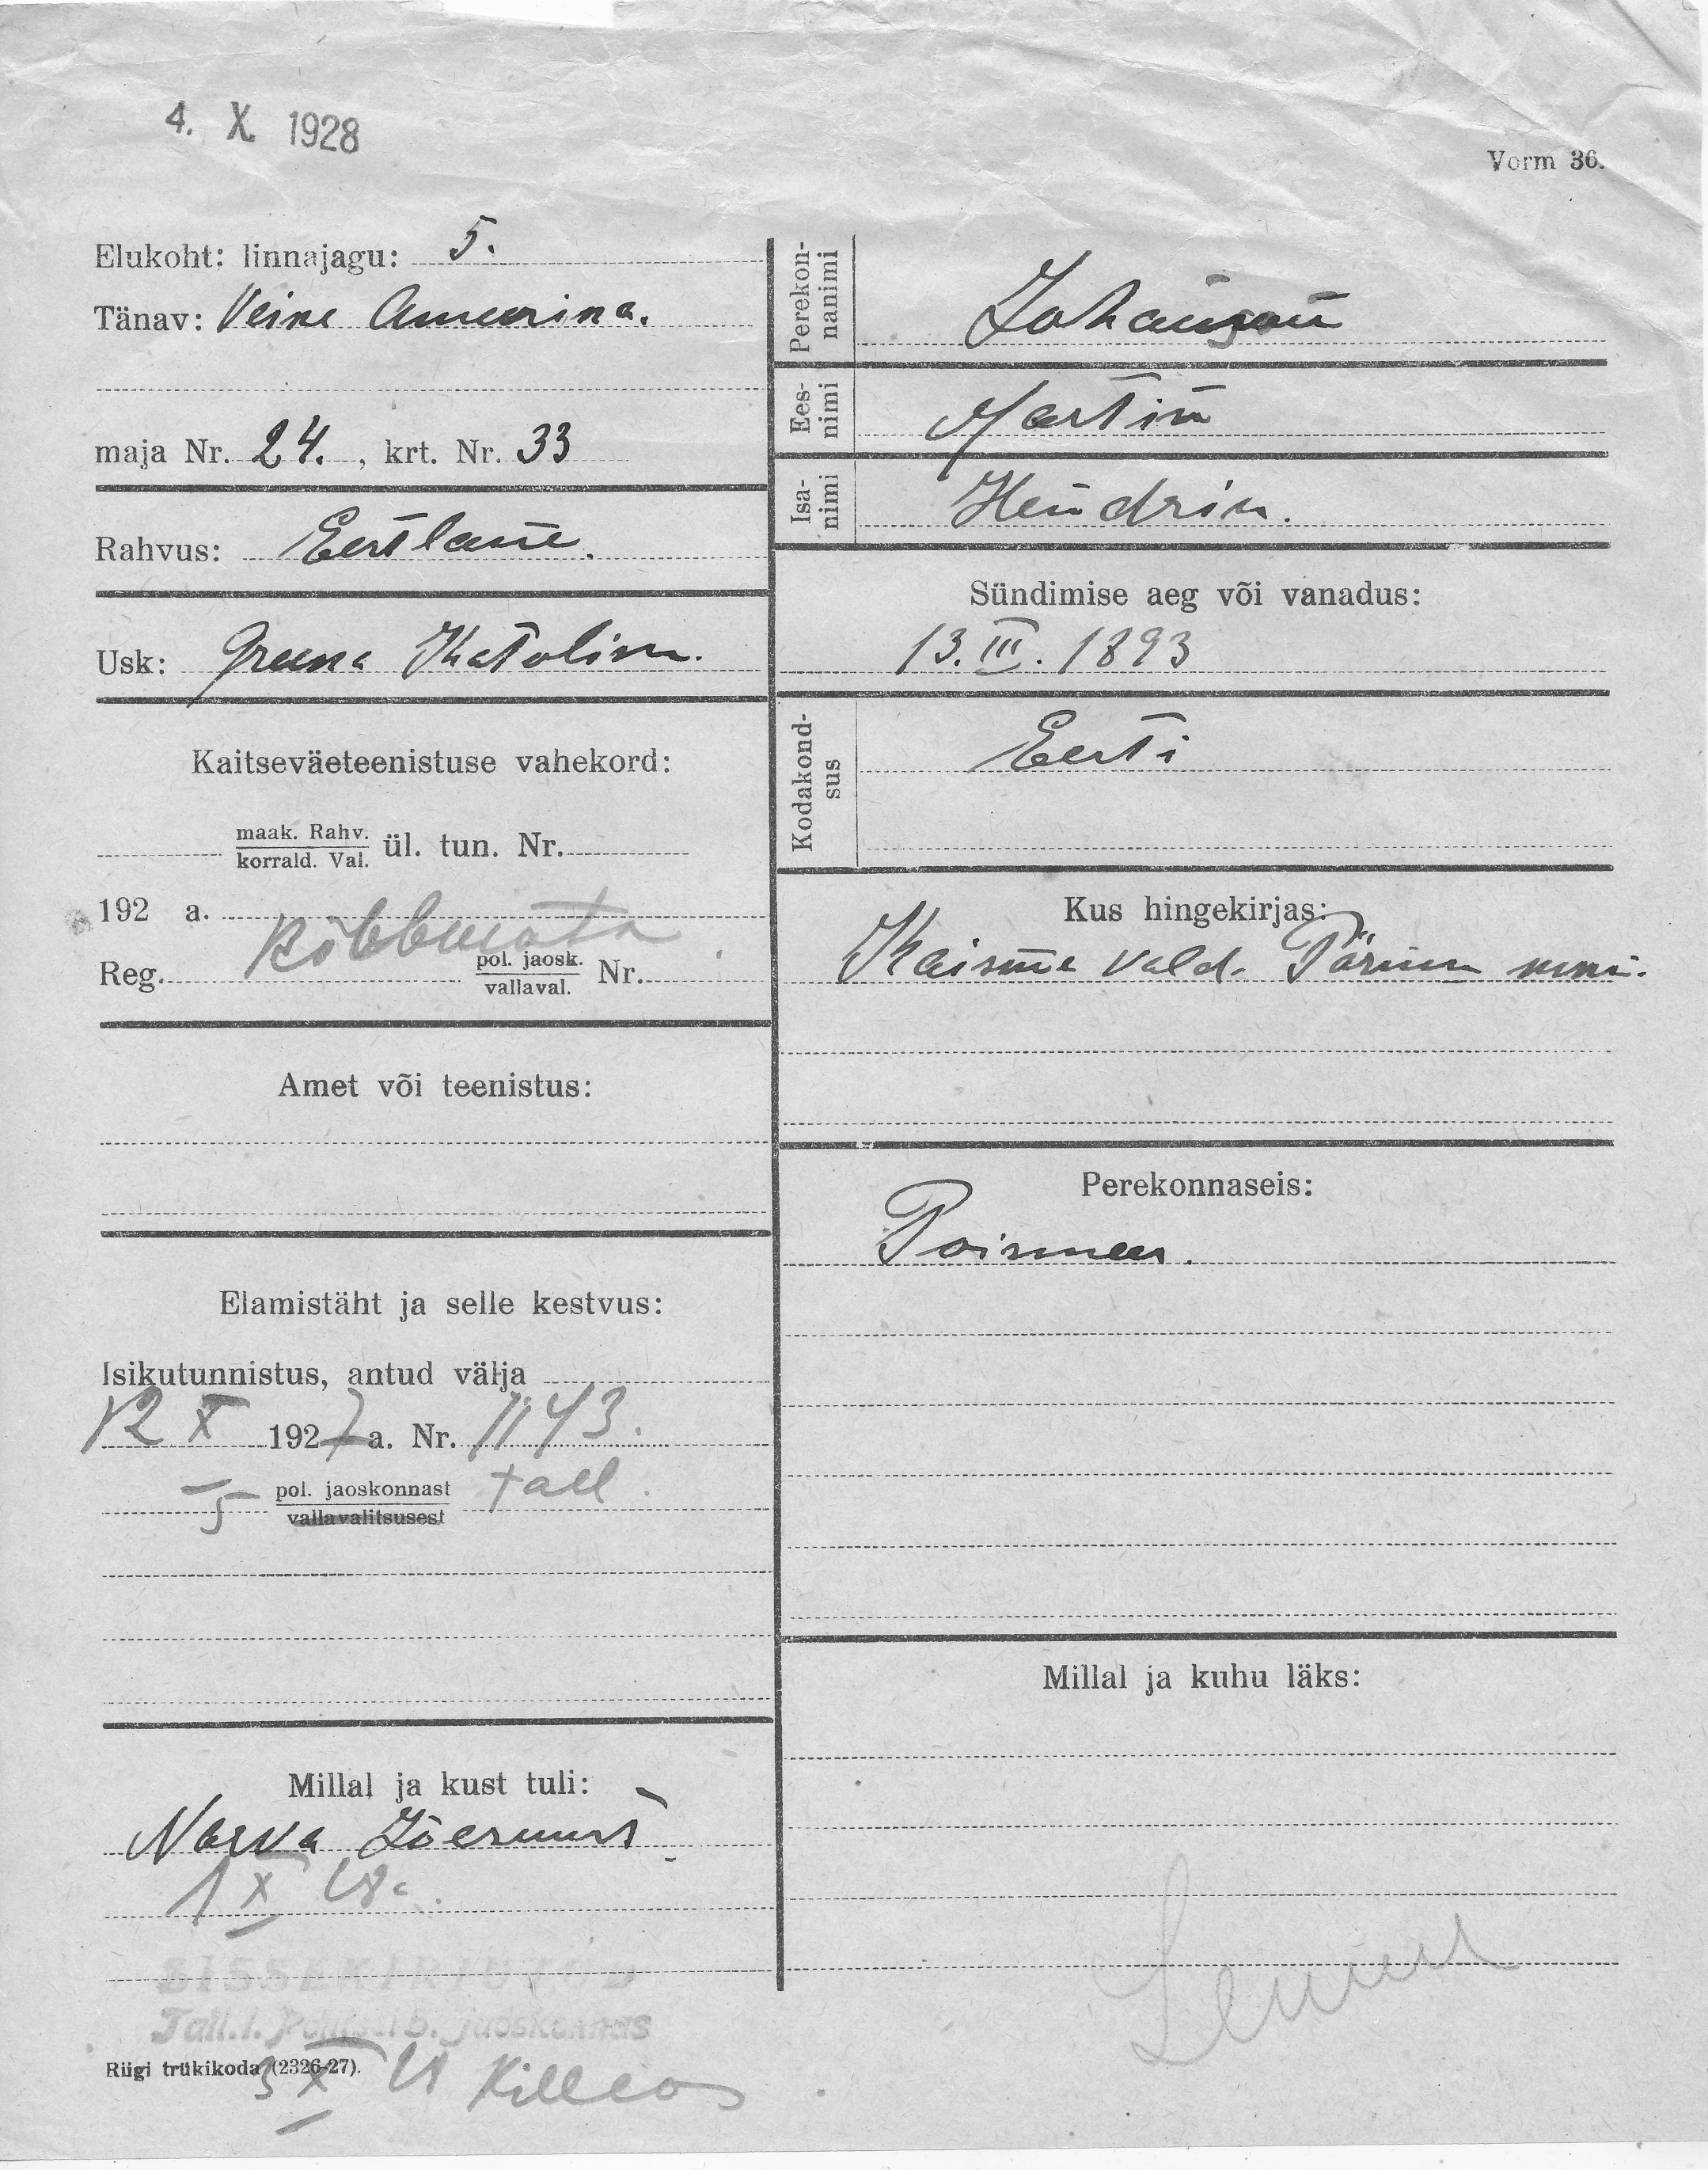 4. X. 1928
Vorm 36.
Elukoht: linnajagu: 5.
Tänav: Veike Ameerika.
maja Nr. 24., krt. Nr. 33
Rahvus: Eestlane.
Usk: Greeka Katolik.
Kaitseväeteenistuse vahekord:
maak. Rahv.
korrald. Val. ül. tun. Nr.
192 a.
kõlbmata
Reg. pol. jaosk.
vallaval. Nr.
Amet või teenistus:
Elamistäht ja selle kestvus:
Isikutunnistus, antud välja
12 X 1927 a. Nr. 1143.
5 pol. jaoskonnast Tall.
vallavalitsusest
Millal ja kust tuli:
Narva Jõesuust
1 X 28 a.
SISSEKIRJUTUD
Tall.l. Politsei 5. jaoskonnas
Riigi trükikoda (2326-27).
3 X
Perekonnanimi
Johanson
Eesnimi
Martin
Isanimi
Hendrik.
Sündimise aeg või vanadus:
13. III. 1893
Kodakondsus
Eesti
Kus hingekirjas:
Kaisma vald. Pärnu mmk.
Perekonnaseis:
Poismees.
Millal ja kuhu läks: